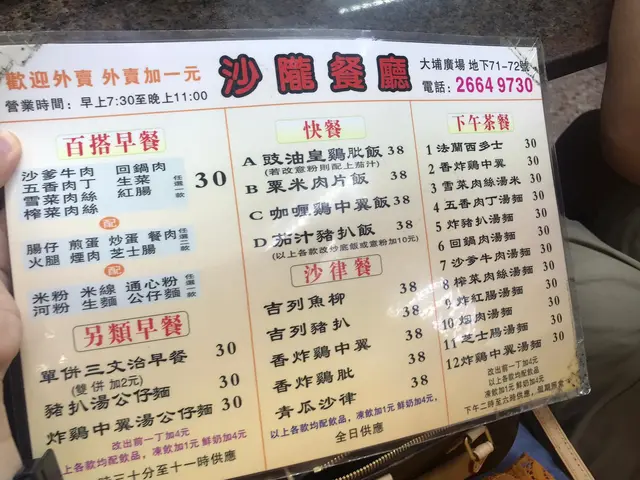 歡迎外賣 外賣加一元
營業時間：早上7:30至晚上11:00
沙隴餐廳
大埔廣場 地下71-72號
電話：2664 9730
百搭早餐
沙爹牛肉 回鍋肉
五香肉丁 生菜
雪菜肉絲 紅腸
榨菜肉絲
任選一款
30
配
腸仔 煎蛋 炒蛋 餐肉
火腿 煙肉 芝士腸
任選二款
配
米粉 米線 通心粉
河粉 生麵 公仔麵
任選一款
另類早餐
單併三文治早餐 30
(雙併加2元)
豬扒湯公仔麵 30
炸鷄中翼湯公仔麵 30
改出前一丁加4元
上各款均配飲品，凍飲加1元 鮮奶加4元
時三十分至十一時供應
快餐
A 豉油皇鷄肶飯 38
(若改意粉則配上茄汁)
B 粟米肉片飯 38
C 咖喱鷄中翼飯 38
D 茄汁豬扒飯 38
(以上各款改炒底飯或意粉加10元)
沙律餐
吉列魚柳 38
吉列豬扒 38
香炸鷄中翼 38
香炸鷄肶 38
青瓜沙律 38
以上各款均配飲品，凍飲加1元 鮮奶加4元，
全日供應
下午茶餐
1 法蘭西多士 30
2 香炸鷄中翼 30
3 雪菜肉絲湯米 30
4 五香肉丁湯麵 30
5 炸豬扒湯麵 30
6 回鍋肉湯麵 30
7 沙爹牛肉湯麵 30
8 榨菜肉絲湯麵 30
9 炸紅腸湯麵 30
10 烟肉湯麵 30
11 芝士腸湯麵 30
12 炸鷄中翼湯麵 30
改出前一丁加4元
以上各款均配飲品
凍飲加1元 鮮奶加4元
下午二時至六時供應，